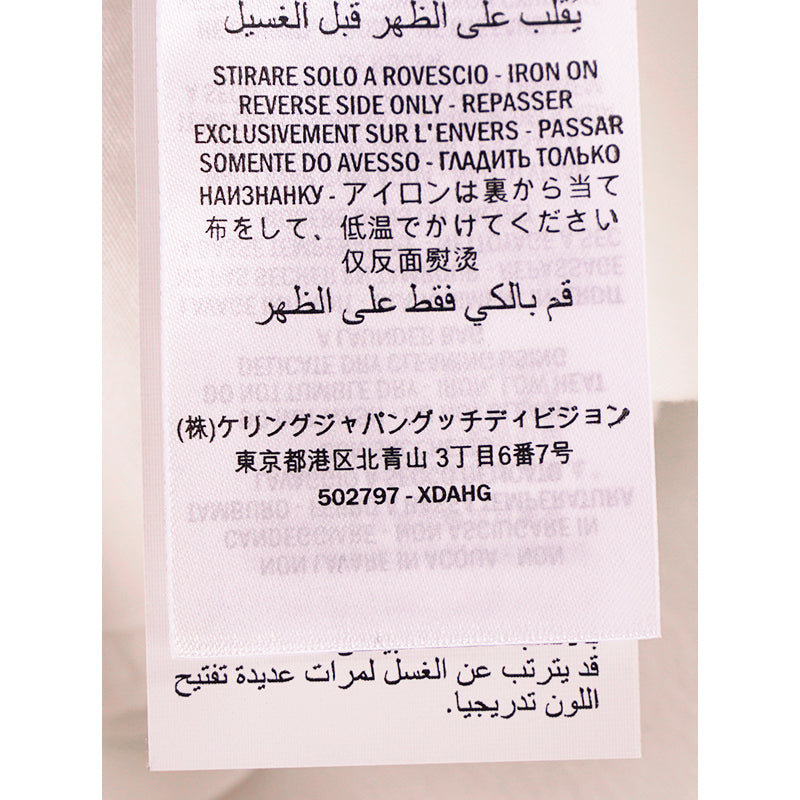 يُقلب على الظهر قبل الغسيل
STIRARE SOLO A ROVESCIO - IRON ON
REVERSE SIDE ONLY - REPASSER
EXCLUSIVEMENT SUR L'ENVERS - PASSAR
SOMENTE DO AVESSO - ГЛАДИТЬ ТОЛЬКО
НАИЗНАНКУ - アイロンは裏から当て
布をして、低温でかけてください
仅反面熨烫
قم بالكي فقط على الظهر
(株)ケリングジャパングッチディビジョン
東京都港区北青山 3丁目6番7号
502797 - XDAHG
قد يترتب عن الغسل لمرات عديدة تفتيح
اللون تدريجيا.